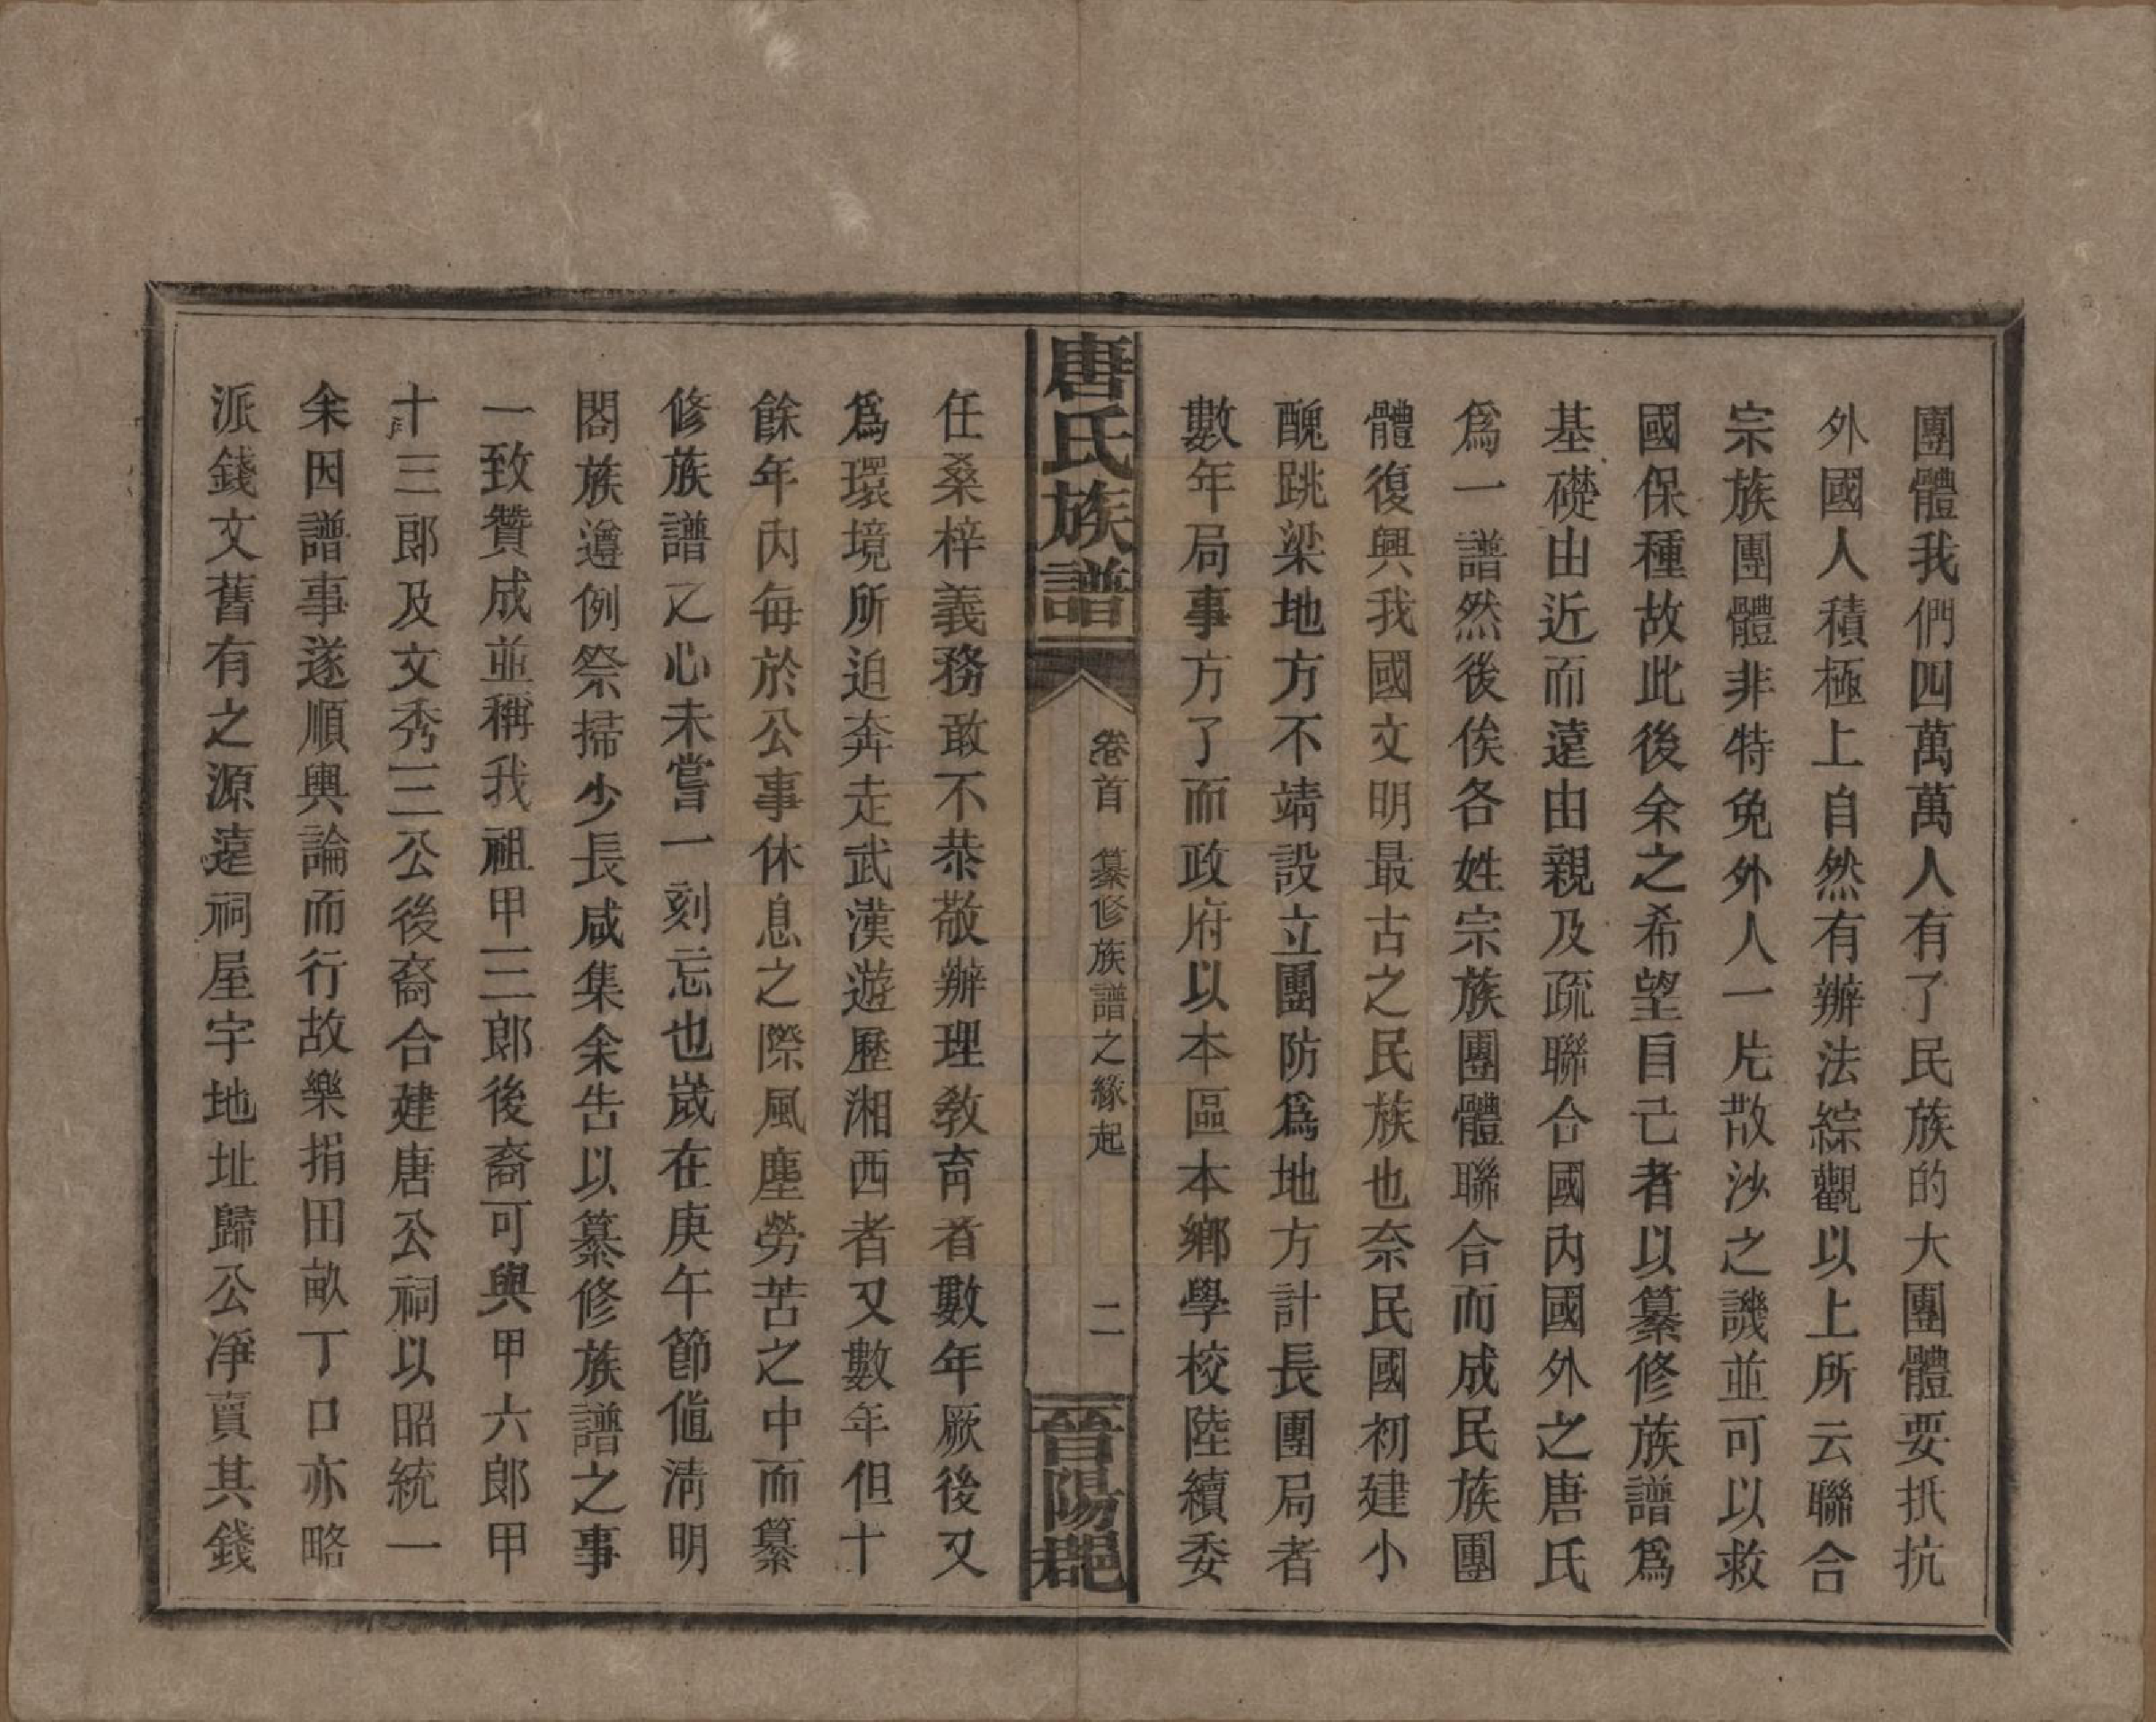 團體我們四萬萬人有了民族的大團體要抵抗
外國人積極上自然有辦法綜觀以上所云聯合
宗族團體非特免外人一片散沙之譏並可以救
國保種故此後余之希望自己者以纂修族譜爲
基礎由近而遠由親及疏聯合國內國外之唐氏
爲一譜然後俟各姓宗族團體聯合而成民族團
體復興我國文明最古之民族也奈民國初建小
醜跳梁地方不靖設立團防爲地方計長團局者
數年局事方了而政府以本區本鄉學校陸續委
唐氏族譜
卷首 纂修族譜之緣起 二
晉陽郡
任桑梓義務敢不恭敬辦理敎育者數年厥後又
爲環境所迫奔走武漢遊歷湘西者又數年但十
餘年內每於公事休息之際風塵勞苦之中而纂
修族譜之心未嘗一刻忘也歲在庚午節値淸明
閤族遵例祭掃少長咸集余告以纂修族譜之事
一致贊成並稱我祖甲三郎後裔可與甲六郎甲
十三郎及文秀三公後裔合建唐公祠以昭統一
余因譜事遂順輿論而行故樂捐田畝丁口亦略
派錢文舊有之源遠祠屋宇地址歸公凈賣其錢